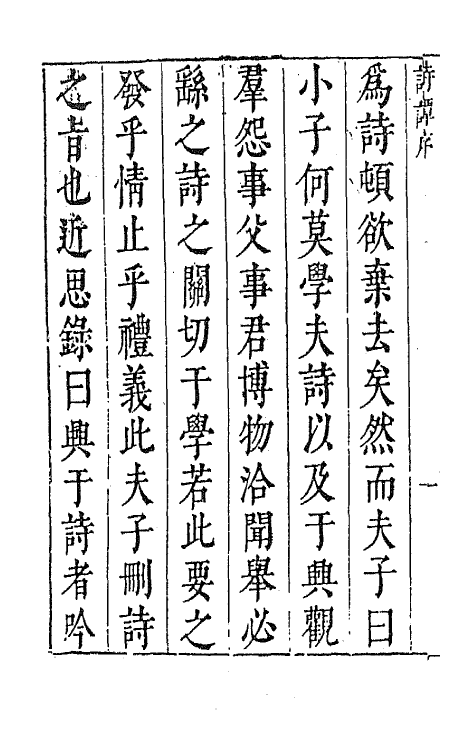 詩譚序
一
爲詩頓欲棄去矣然而夫子曰
小子何莫學夫詩以及于興觀
羣怨事父事君博物洽聞舉必
繇之詩之關切于學若此要之
發乎情止乎禮義此夫子刪詩
之旨也近思錄曰興于詩者吟